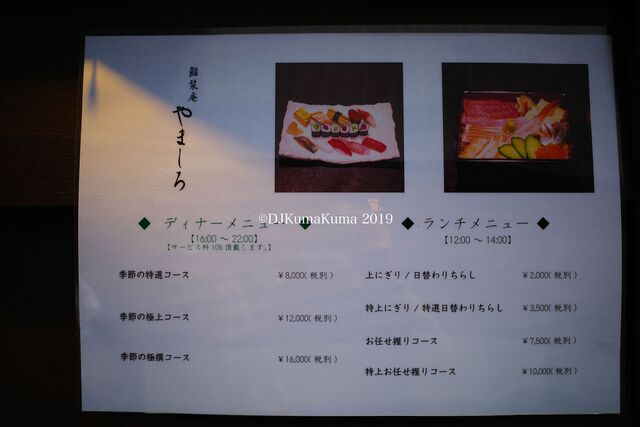 鮨菜庵
やましろ
©DJKumaKuma 2019
◆ ディナーメニュー ◆
【16:00 ～ 22:00】
【サービス料10%頂戴します。】
季節の特選コース ￥8,000(税別)
季節の極上コース ￥12,000(税別)
季節の極撰コース ￥16,000(税別)
◆ ランチメニュー ◆
【12:00 ～ 14:00】
上にぎり / 日替わりちらし ￥2,000(税別)
特上にぎり / 特選日替わりちらし ￥3,500(税別)
お任せ握りコース ￥7,500(税別)
特上お任せ握りコース ￥10,000(税別)